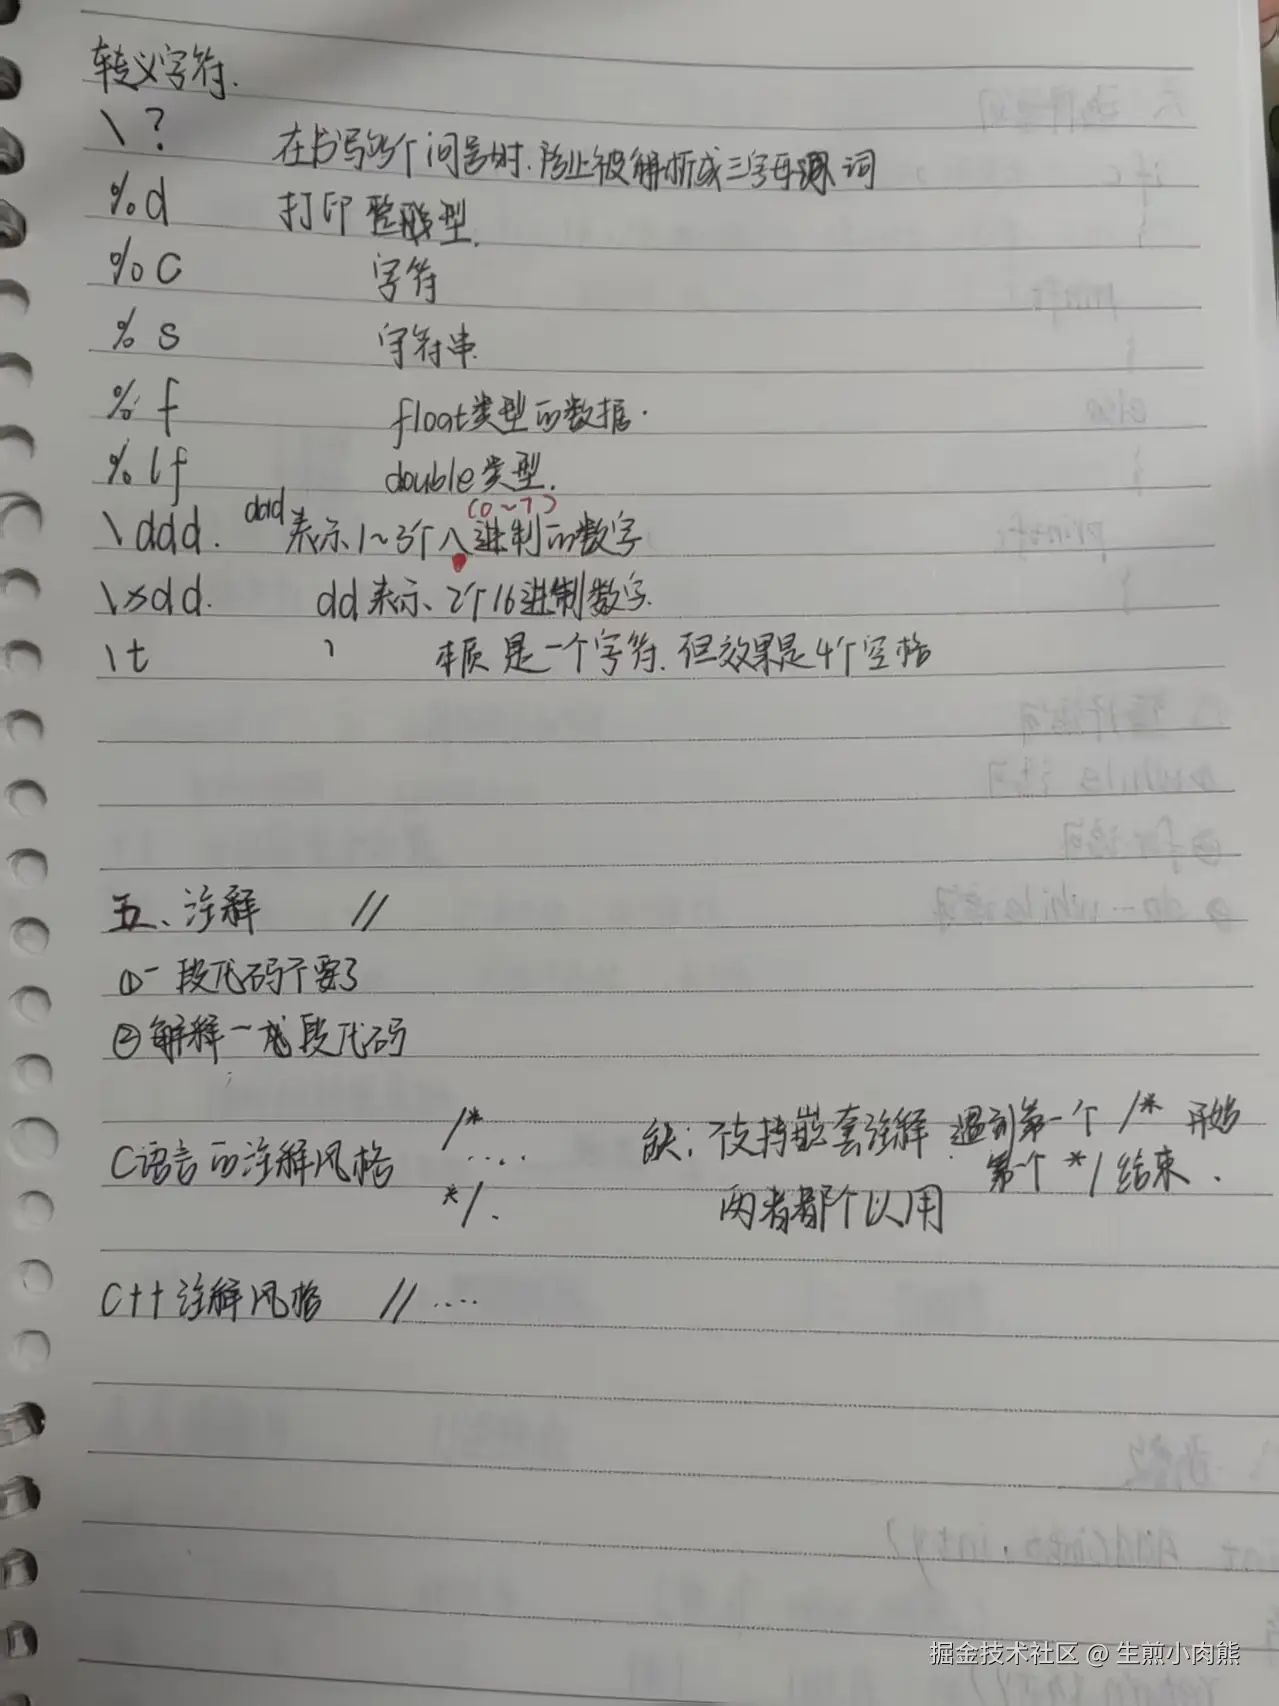 转义字符.
\? 在书写多个问号时.防止被解析成三字母词
%d 打印整型.
%c 字符
%s 字符串.
%f float类型的数据.
%lf double类型.
(0~7)
\ddd. ddd表示1~3个八进制的数字
\xdd. dd表示2个16进制数字.
\t 本质是一个字符.但效果是4个空格
五、注释 //
①一段代码不要了
②解释一段代码
/* 缺:不支持嵌套注释 遇到第一个 /* 开始
C语言的注解风格 .... 第一个 */ 结束.
*/. 两者都可以用
C++注解风格 // ....
掘金技术社区 @ 生煎小肉熊